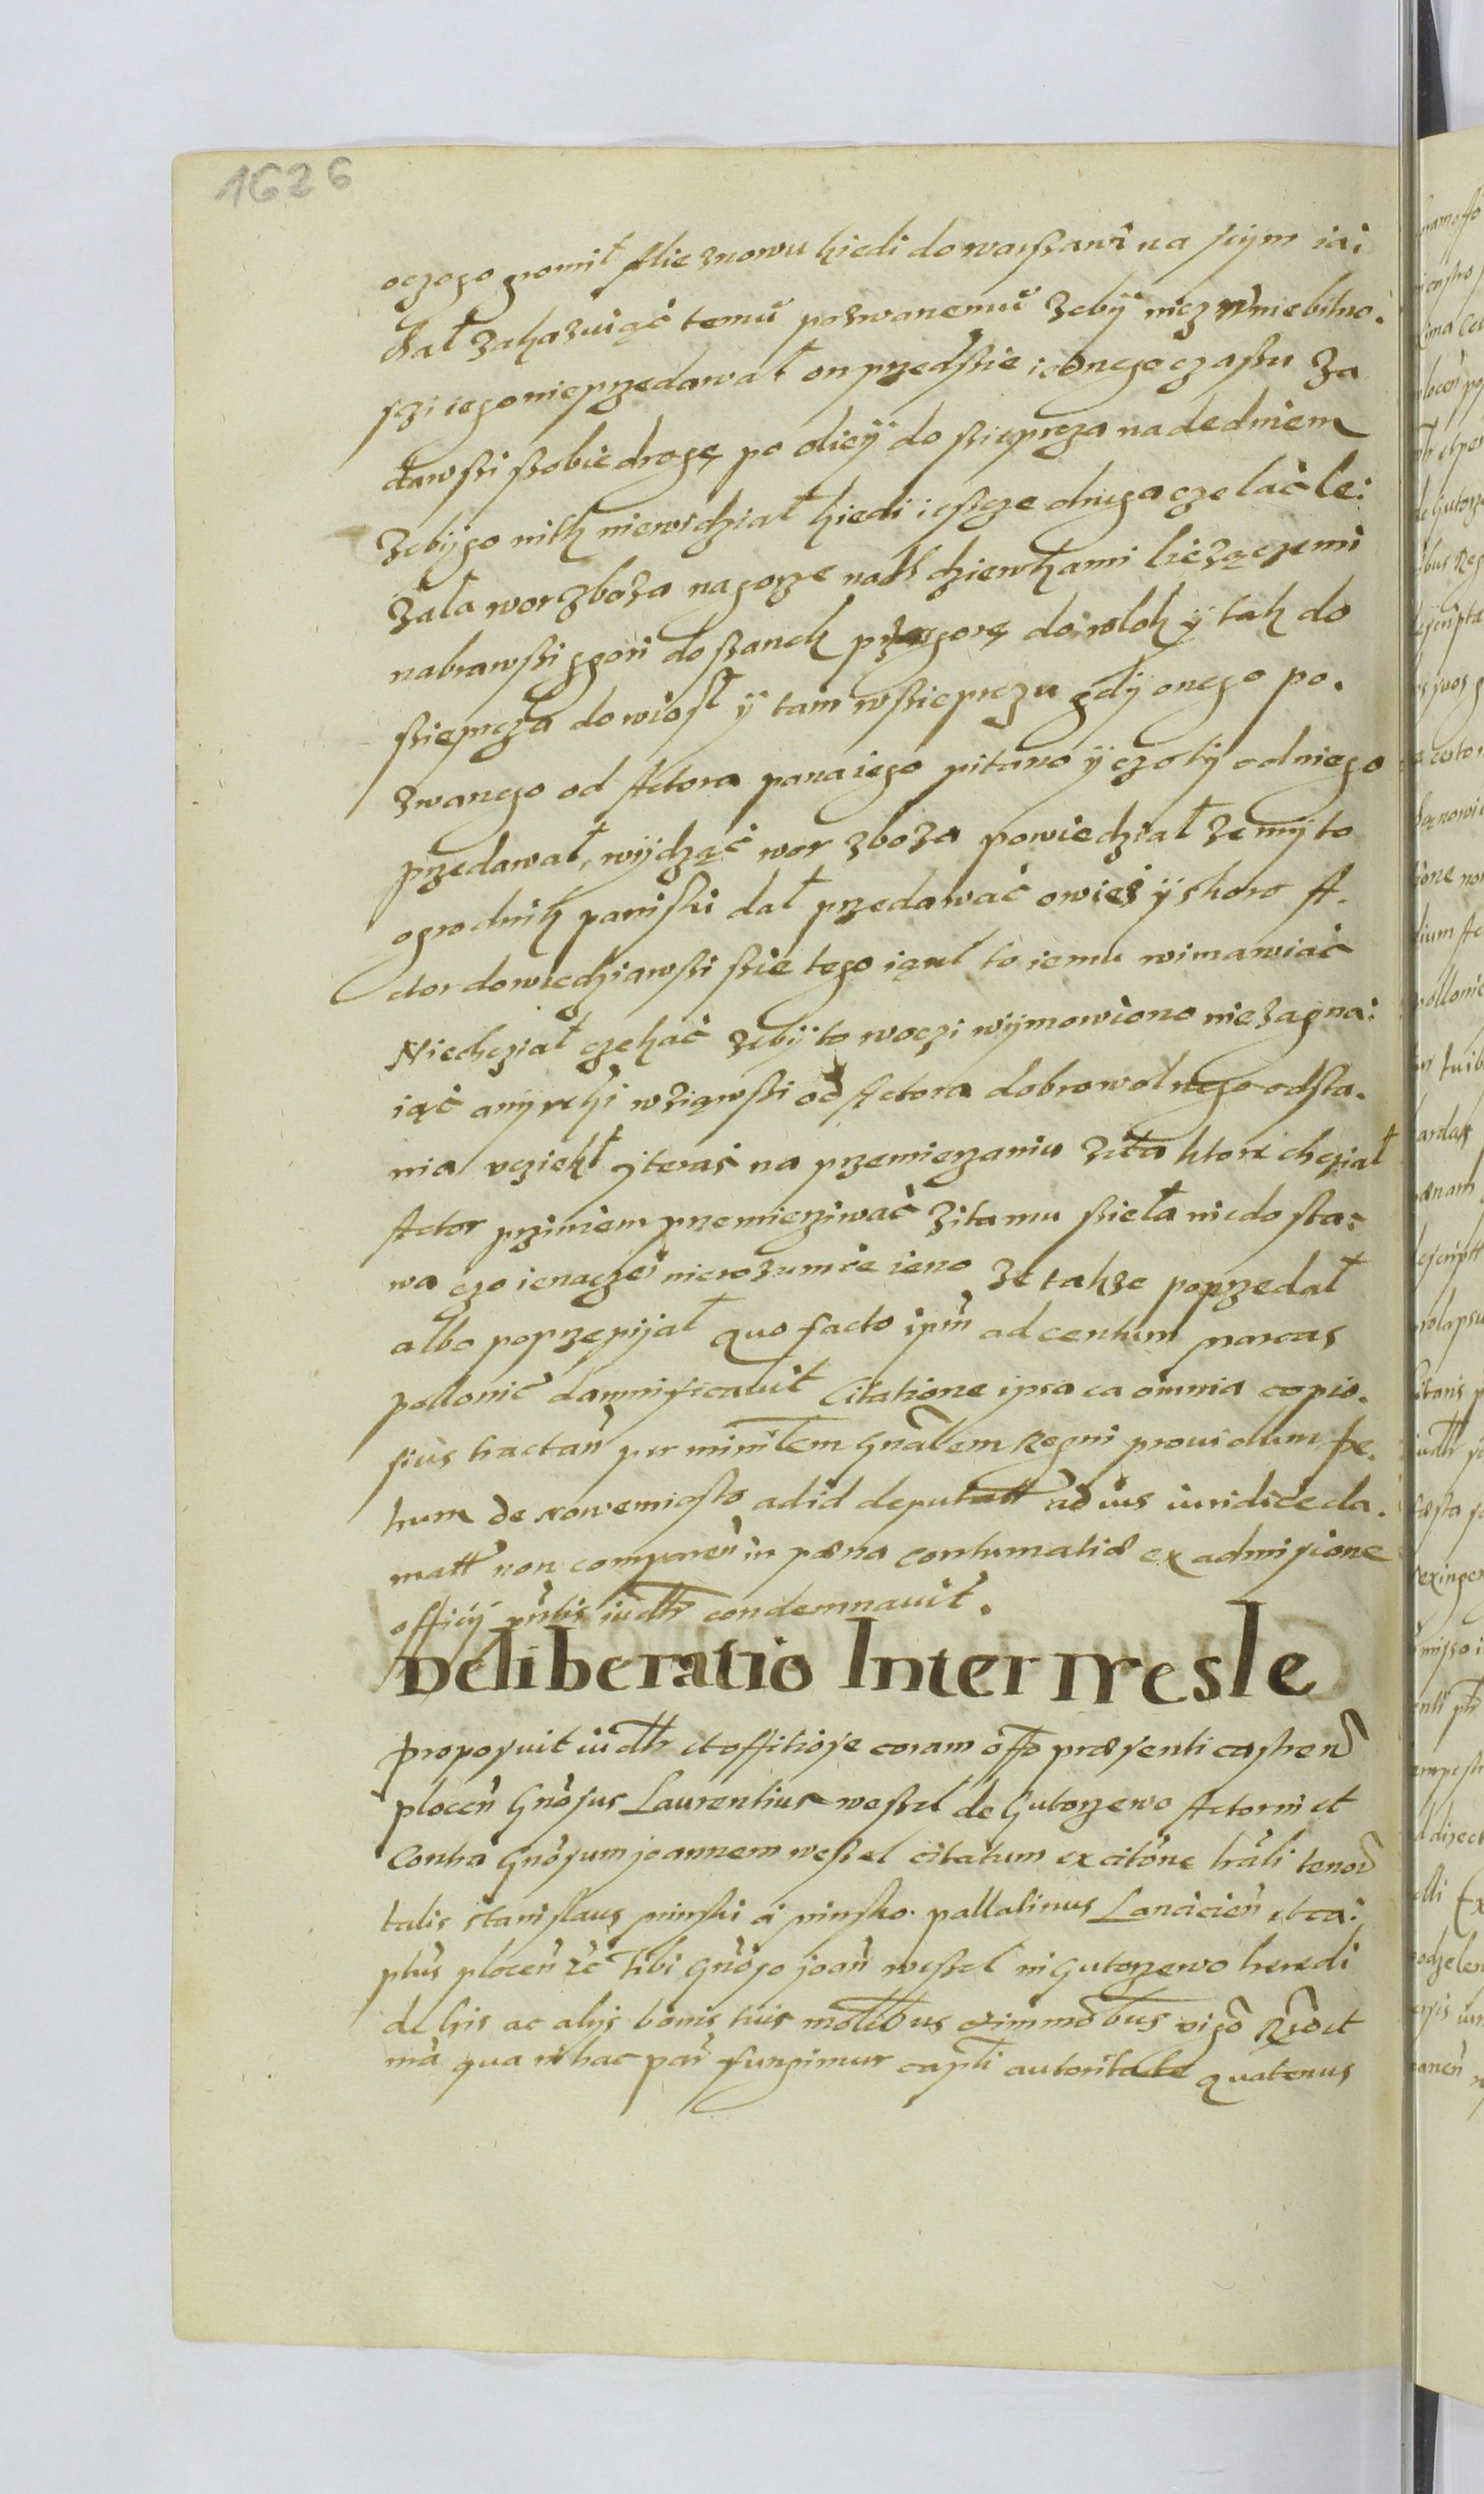 1626
oczego gromił Alie znowu kiedi do warßawi na seym iai
chał zakazuiąć temu pozwanemu zebÿ nicz w niebitno.
sczi iego nieprzedawał on przedßie i onego czaßu za
dawßi ßobie drogę po oliceÿ do ßieprcza nadedniem
zebÿ go nikh niewidział kiedi ießcze druga czelać le:
zała wor zboza nagorze nad dziewkami liezączemi
nabrawßi zgori do ßanek przez gorę do wlok ÿ tak do
ßieprcza dowiosł ÿ tam wßieprczu gdÿ onego po.
zwanego od Actora pana iego pitano ÿ czo tÿ odniego
przedawał, wÿdząć wor zboza powiedział ze mÿ to
ogrodnik panski dał przedawać owies ÿ skoro A.
ctor dowiedziawßi ßie tego iąnl to iemu wimawiać
Niechcział czekać zebÿ to woczi wÿmowiono niezagna:
iąć anÿ rehi wziąwßi od Actora dobrowolnego odsta.
nia vciekł ÿ teras na przemierzaniu zita ktore chcział
Actor prziniem przemierziwać zita mu ßieła niedosta:
wa czo ienaczei nierozumie ieno ze takze poprzedał
albo poprzepijał quo facto ipm ad centum marcas
pollonic damnificavit Citatione ipsa ea omnia copio.
sius tractan per ministlem Gnalem Regni providum Pe.
trum de nowemiasto ad id deputatt ad ius iuridice cla.
matt non comparen in pœna contumatiæ ex admissione
officÿ pntis iudtr condemnavit.
Deliberatio Inter wesle
Proposuit iudtr et offitiose coram offo præsenti castren
plocen Gnosus Laurentius weßel de Gutorzewo Actorni et
Contra Gnosum joannem weßel citatum ex citone trali tenor
talis stanislaus minski a minsko pallatinus Lancicien et ca:
ptus plocen zc Tibi Gnoso joan weßel in Gutorzewo heredi
de his ac alÿs bonis tuis molibus et immobus vigo Rro et
ma qua in hac par fungimur capli autoritate quatenus